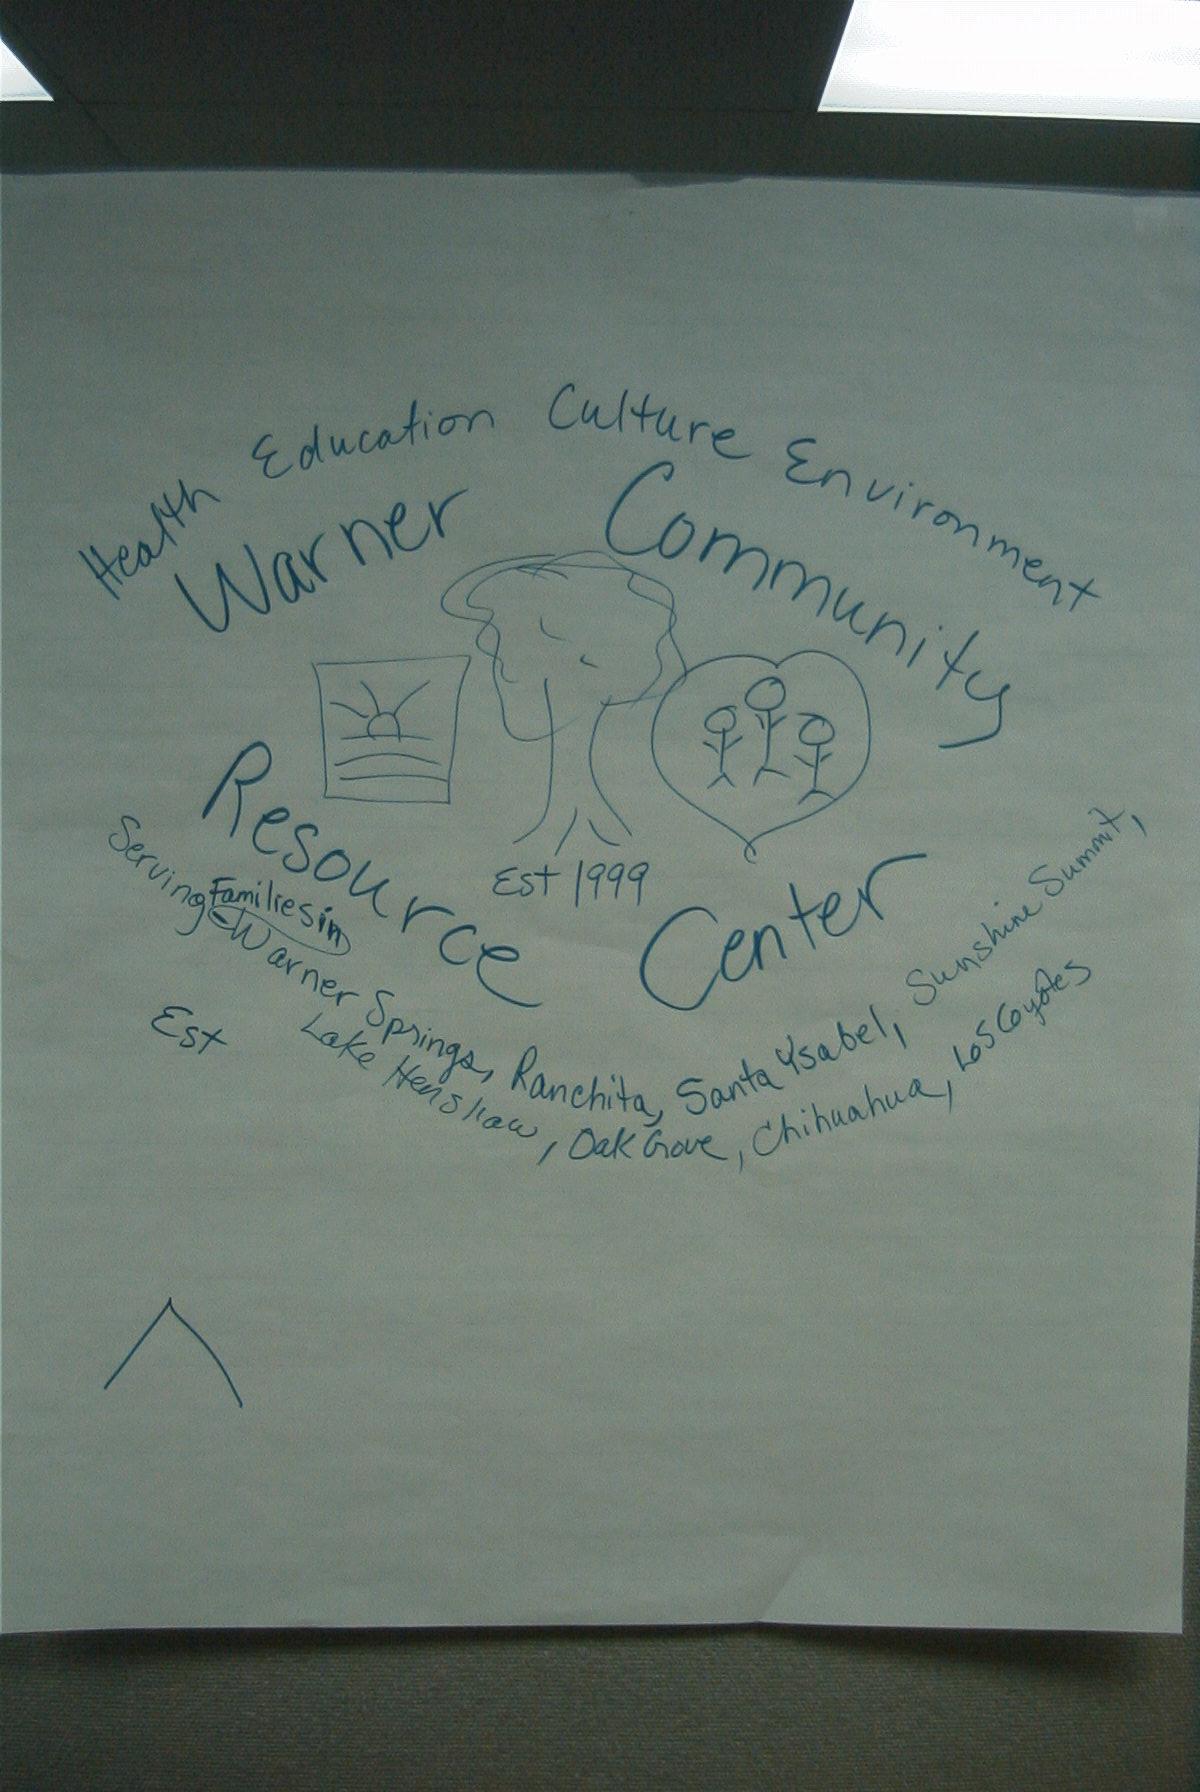 Health Education Culture Environment
Warner Community
Resource Center
Est 1999
Serving Families in Warner Springs, Ranchita, Santa Ysabel, Sunshine Summit,
Lake Henshaw, Oak Grove, Chihuahua, Los Coyotes
Est